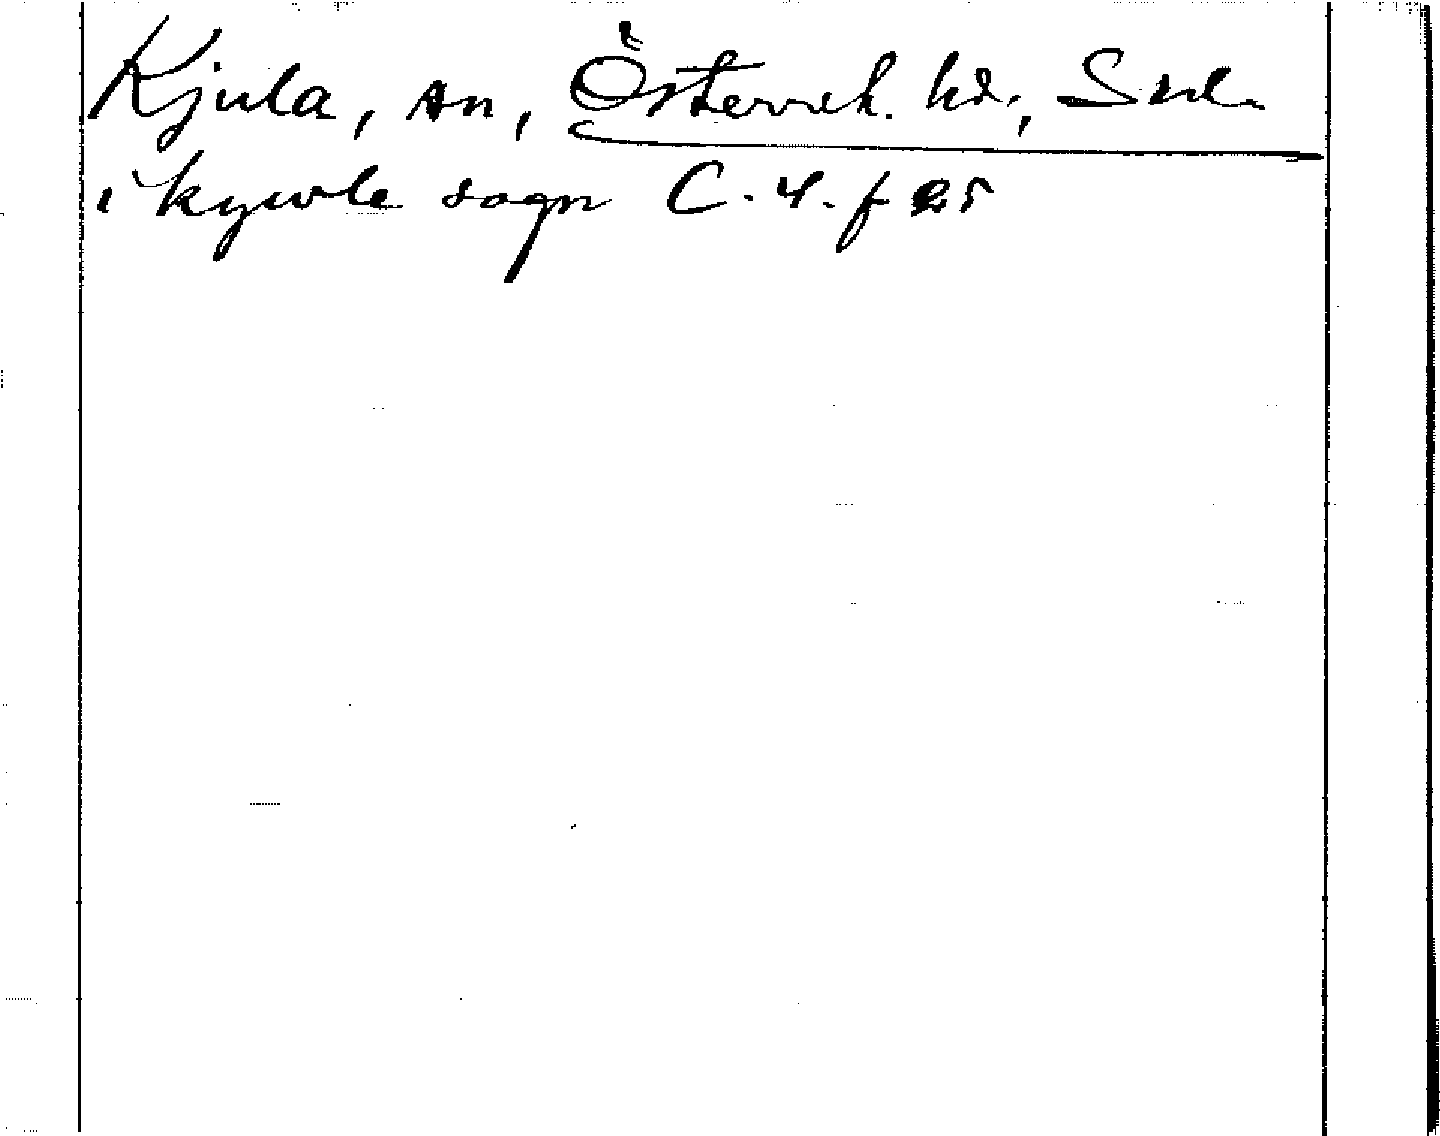 Kjula, sn, Österrek. hd, Södl.
i kywle sogn C. 4. f 25